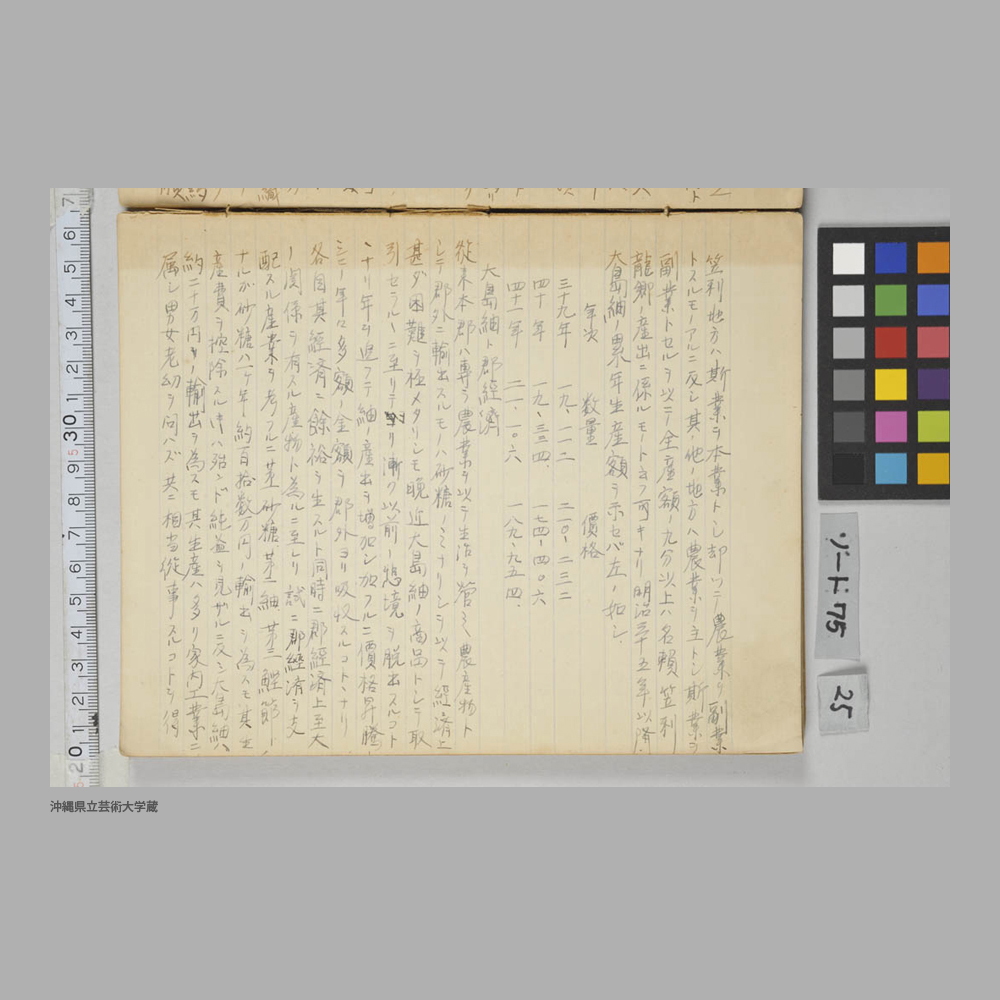 笠利地方ハ斯業ヲ本業トシ却ツテ農業ヲ副業
トスルモノアルニ反シ其ノ他ノ地方ハ農業ヲ主トシ斯業ヲ
副業トセルヲ以テ全産額ノ九分以上ハ名瀬笠利
龍郷ノ産出ニ係ルモノト云フ可キナリ明治三十五年以降
大島紬ノ累年生産額ヲ示セバ左ノ如シ.
年次 数量 價格
三十九年 一九、一一二 二一〇、二三二
四十年 一九、三三四、 一七四、四〇六
四十一年 二一、一〇六 一八九、九五四、
大島紬ト郡經濟
從来本郡ハ專ラ農業ヲ以テ生活ヲ營ミ農産物ト
シテ郡外ニ輸出スルモノハ砂糖ノミナリシヲ以テ經済上
甚ダ困難ヲ極メタリシモ晩近大島紬ノ商品トシテ取
引セラルヽニ至リテヨリ漸ク以前ノ悲境ヲ脱出スルコト
ヽナリ年ヲ追フテ紬ノ産出ヲ増加シ加フルニ價格昇騰
シ年々多額ノ金額ヲ郡外ヨリ吸収スルコトヽナリ
各自其經済ニ餘裕ヲ生スルト同時ニ郡經済上至大
ノ関係ヲ有スル産物ト為ルニ至レリ試ニ郡經済ヲ支
配スル産業ヲ考フルニ第一砂糖第二紬第三鰹節
ナルガ砂糖ハ一ケ年約百拾数万円ノ輸出ヲ為スモ其生
産費ヲ控除スル時ハ殆ンド純益ヲ見ザルニ反シ大島紬ハ
約二十万円ノ輸出ヲ為スモ其生産ハ多ク家内工業ニ
属シ男女老幼ヲ問ハズ共ニ相当從事スルコトヲ得
ゾートド75
25
沖縄県立芸術大学蔵